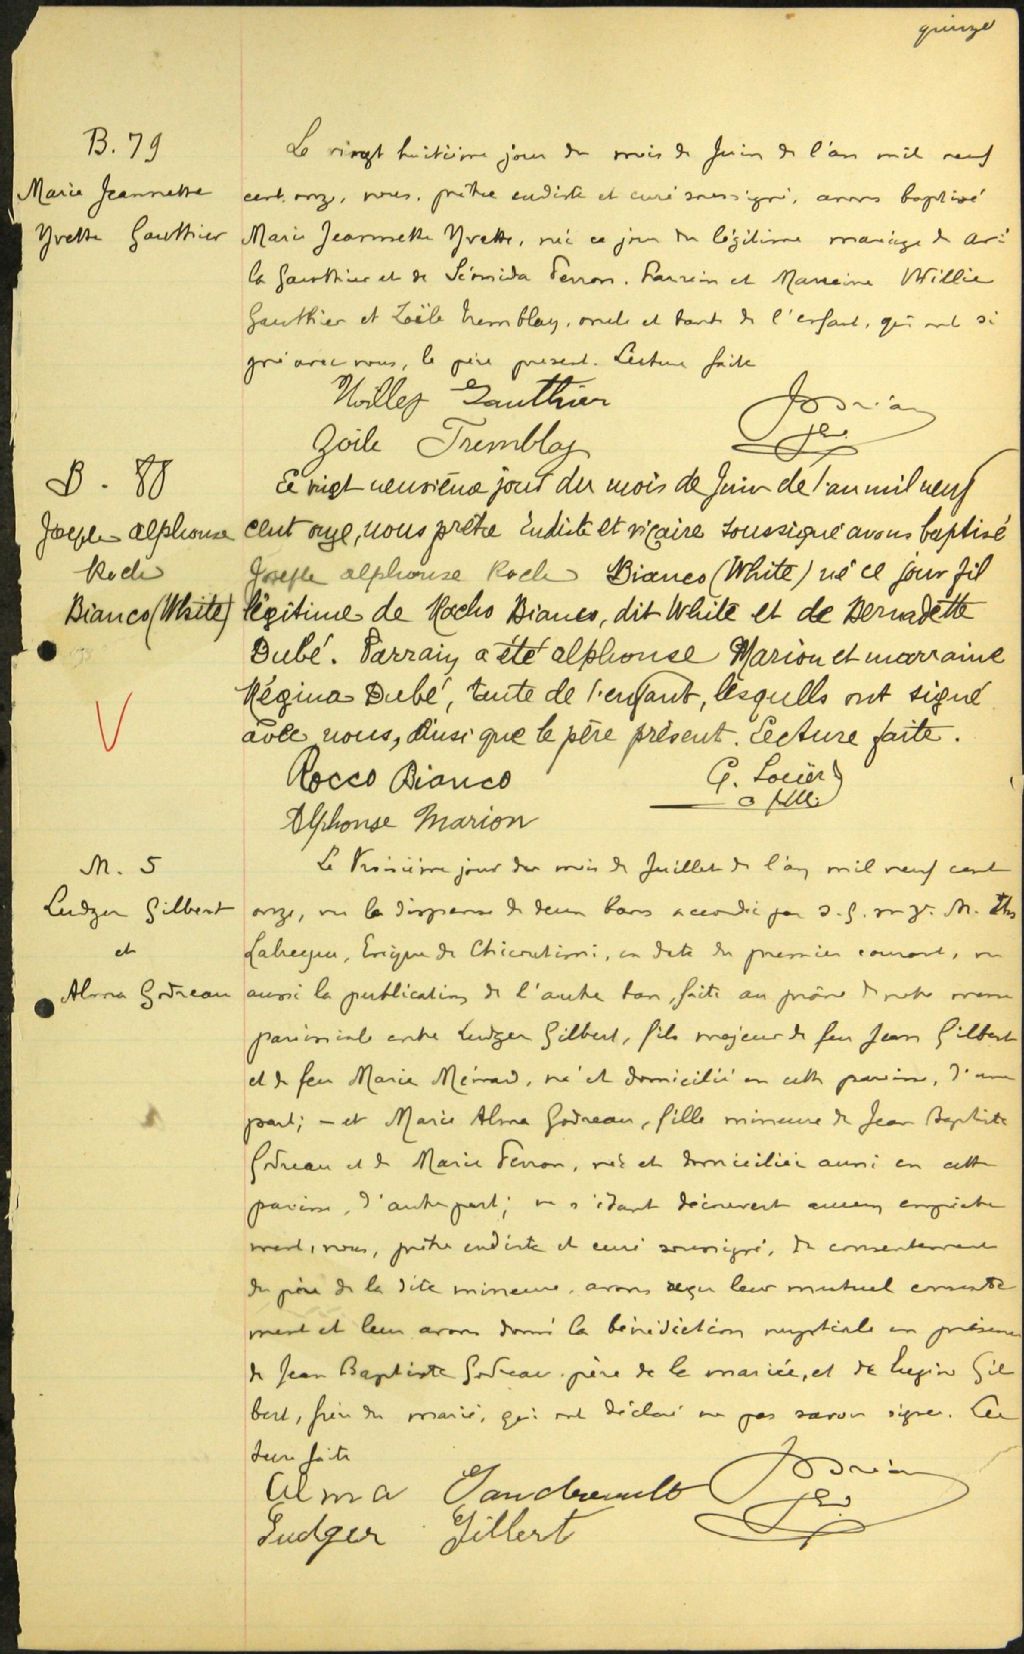 quinze
B. 79
Marie Jeannette
Yvette Gauthier
Le vingt huitième jour du mois de Juin de l'an mil neuf
cent onze, nous, prêtre eudiste et curé soussigné, avons baptisé
Marie Jeannette Yvette, née ce jour du légitime mariage de Ari
la Gauthier et de Sémida Perron. Parrain et Marraine Willie
Gauthier et Zoële Tremblay, oncle et tante de l'enfant, qui ont si
gné avec nous, le père présent. Lecture faite
Willey Gauthier
Zoile Tremblay
B. 88
Joseph alphonse
Roch
Bianco (White)
Le vingt neuvième jour du mois de Juin de l'an mil neuf
cent onze, nous prêtre Eudiste et vicaire soussigné avons baptisé
Joseph alphonse Roch Bianco (White) né ce jour fil
légitime de Rocho Bianco, dit White et de Bernadette
Dubé. Parrain a été alphonse Marion et marraine
Régina Dubé, tante de l'enfant, lesquells ont signé
avec nous, ainsi que le père présent. Lecture faite.
Rocco Bianco
Alphonse Marion
M. 5
Ludger Gilbert
et
Alma Godreau
Le troisième jour du mois de Juillet de l'an mil neuf cent
onze, vu la dispense de deux bans accordée par S. G. Mgr. M. Ths
Labrecque, Evêque de Chicoutimi, en date du premier courant, vu
aussi la publication de l'autre ban, faite au prône de notre messe
paroissiale entre Ludger Gilbert, fils majeur de feu Jean Gilbert
et de feu Marie Ménard, né et domicilié en cette paroisse, d'une
part; – et Marie Alma Godreau, fille mineure de Jean Baptiste
Godreau et de Marie Perron, née et domiciliée aussi en cette
paroisse, d'autre part; ne s'étant découvert aucun empêche
ment, nous, prêtre eudiste et curé soussigné, du consentement
du père de la dite mineure, avons reçu leur mutuel consente
ment et leur avons donné la bénédiction nuptiale en présence
de Jean Baptiste Godreau père de la mariée, et de Gil
bert, frère du marié, qui ont déclaré ne pas savoir signer. Lec
ture faite
Alma Gaudreault
Ludger Gilbert